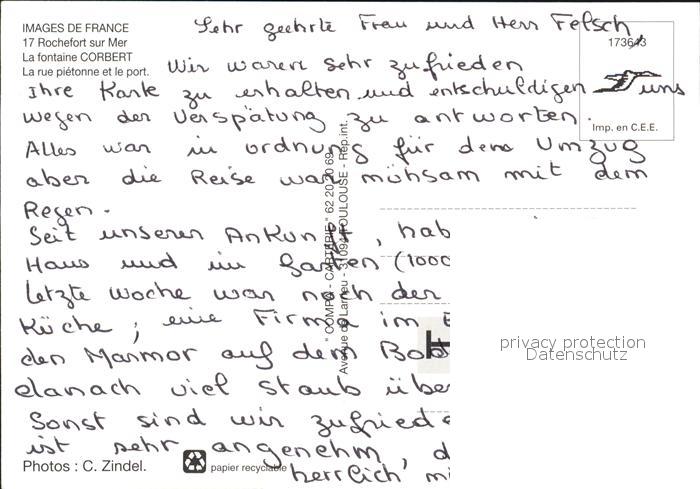 IMAGES DE FRANCE
17 Rochefort sur Mer
La fontaine CORBERT
La rue piétonne et le port.
Sehr geehrte Frau und Herr Felsch,
173643
Wir waren sehr zufrieden
Ihre Karte zu erhalten und entschuldigen uns
wegen der Verspätung zu antworten.
Imp. en C.E.E.
Alles war in ordnung für dem Umzug
aber die Reise war mühsam mit dem
Regen.
Seit unseren Ankunft, hab
Haus und im Garten (1000
letzte Woche war noch der
Küche; eine Firma im
den Marmor auf dem Bod
danach viel Staub übe
Sonst sind wir zufriede
ist sehr angenehm, d
herrlich mi
"COMPO - CARTERIE" 62 20 20 69
Avenue de Larrieu - 31094 TOULOUSE - Rép.int.
privacy protection
Datenschutz
Photos : C. Zindel.
papier recyclable